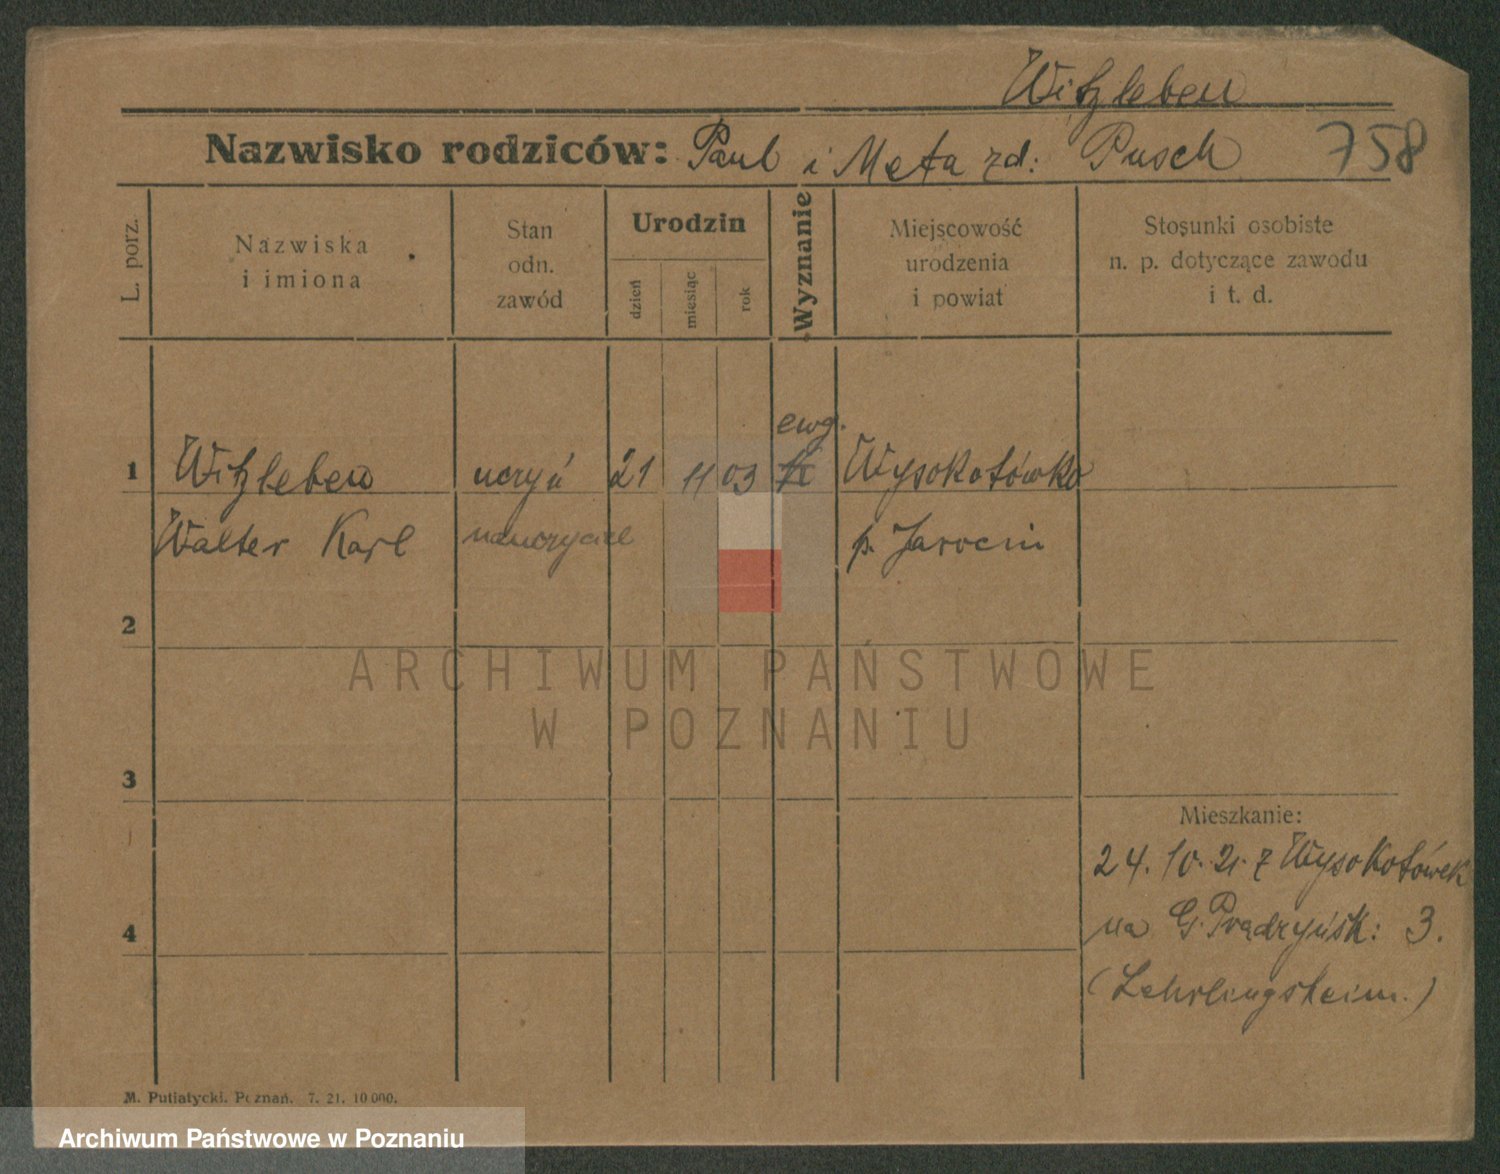 Witzleben
Nazwisko rodziców: Paul i Meta zd: Pusch 758
L. porz.
Nazwiska
i imiona
Stan
odn.
zawód
Urodzin
dzień
miesiąc
rok
Wyznanie
Miejscowość
urodzenia
i powiat
Stosunki osobiste
n. p. dotyczące zawodu
i t. d.
ewg.
1 Witzleben uczyń 21 11 03 Wysokotówko
Walter Karl p. Jarocin
2
ARCHIWUM PAŃSTWOWE
W POZNANIU
3
Mieszkanie:
24. 10. 21. z Wysokotówek
4 na G. Prądzyńsk: 3.
(Lehrlingsheim.)
M. Putiatycki. Poznań. 7. 21. 10 000.
Archiwum Państwowe w Poznaniu